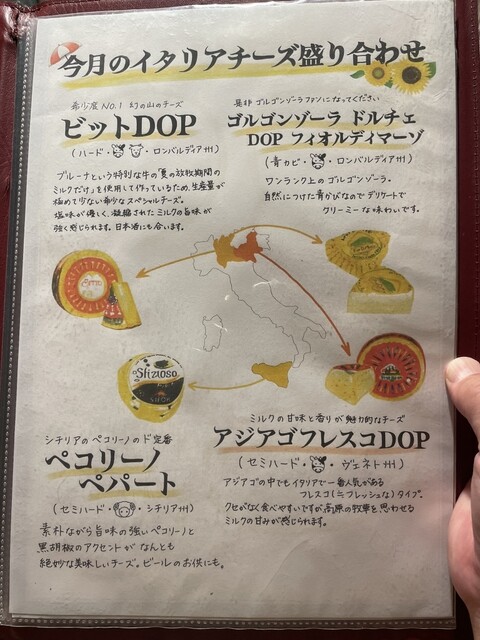 今月のイタリアチーズ盛り合わせ
希少度 No.1 幻の山のチーズ
ビットDOP
(ハード・・ロンバルディア州)
ブルーナという特別な牛の「夏の放牧期間の
ミルクだけ」を使用して作っているため、生産量が
極めて少ない希少なスペシャルチーズ。
塩味が優しく、凝縮されたミルクの旨味が
強く感じられます。日本酒にも合います。
是非ゴルゴンゾーラファンになってください
ゴルゴンゾーラ ドルチェ
DOP フィオルディマーゾ
(青カビ・・ロンバルディア州)
ワンランク上のゴルゴンゾーラ。
自然につけた青かびなのでデリケートで
クリーミーな味わいです。
Bitto
Sfizioso
シチリアのペコリーノのド定番
ペコリーノ
ペパート
(セミハード・・シチリア州)
素朴ながら旨味の強いペコリーノと
黒胡椒のアクセントがなんとも
絶妙な美味しいチーズ。ビールのお供にも。
ミルクの甘味と香りが魅力的なチーズ
アジアゴフレスコDOP
(セミハード・・ヴェネト州)
アジアゴの中でもイタリアで一番人気がある
フレスコ(=フレッシュな)タイプ。
クセがなく食べやすいですが高原の牧草を思わせる
ミルクの甘みが感じられます。